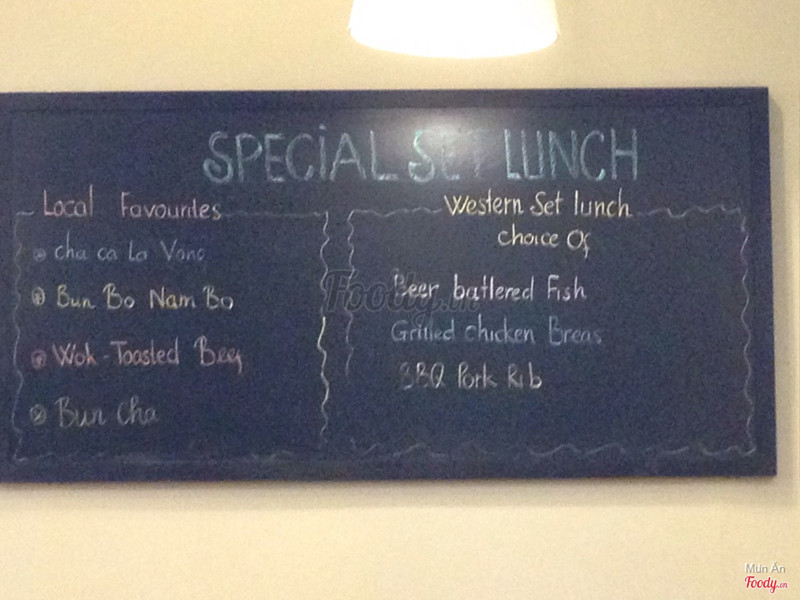 SPECIAL SET LUNCH
Local Favourites
cha ca La Vong
Bun Bo Nam Bo
Wok-Toasted Beef
Bun cha
Western Set lunch
choice Of
Beer battered Fish
Grilled chicken Breas
BBQ Pork Rib
Foody.vn
Mún Án
Foody.vn